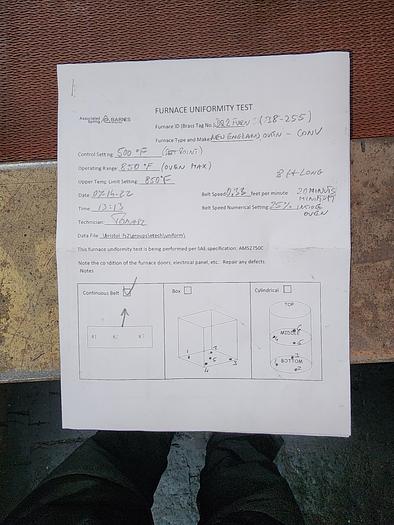 FURNACE UNIFORMITY TEST
Associated Spring BARNES
Furnace ID (Brass Tag No.) (38-255)
Furnace Type and Make: NEW ENGLAND OVEN - CONV
Control Setting: 500 °F (SET POINT)
Operating Range: 850 °F (OVEN MAX)
8 ft LONG
Upper Temp. Limit Setting: 850°F
Date: 07-14-22
Belt Speed: 0.38 feet per minute
20 MINUTES
MINIMUM
Time: 13:13
Belt Speed Numerical Setting: 25%
INSIDE
OVEN
Technician:
Data File:
This furnace uniformity test is being performed per SAE specification: AMS2750C
Note the condition of the furnace doors, electrical panel, etc. Repair any defects.
Notes
Continuous Belt
Box
Cylindrical
TOP
MIDDLE
BOTTOM
#1 #2 #3
1 2 3 4 5